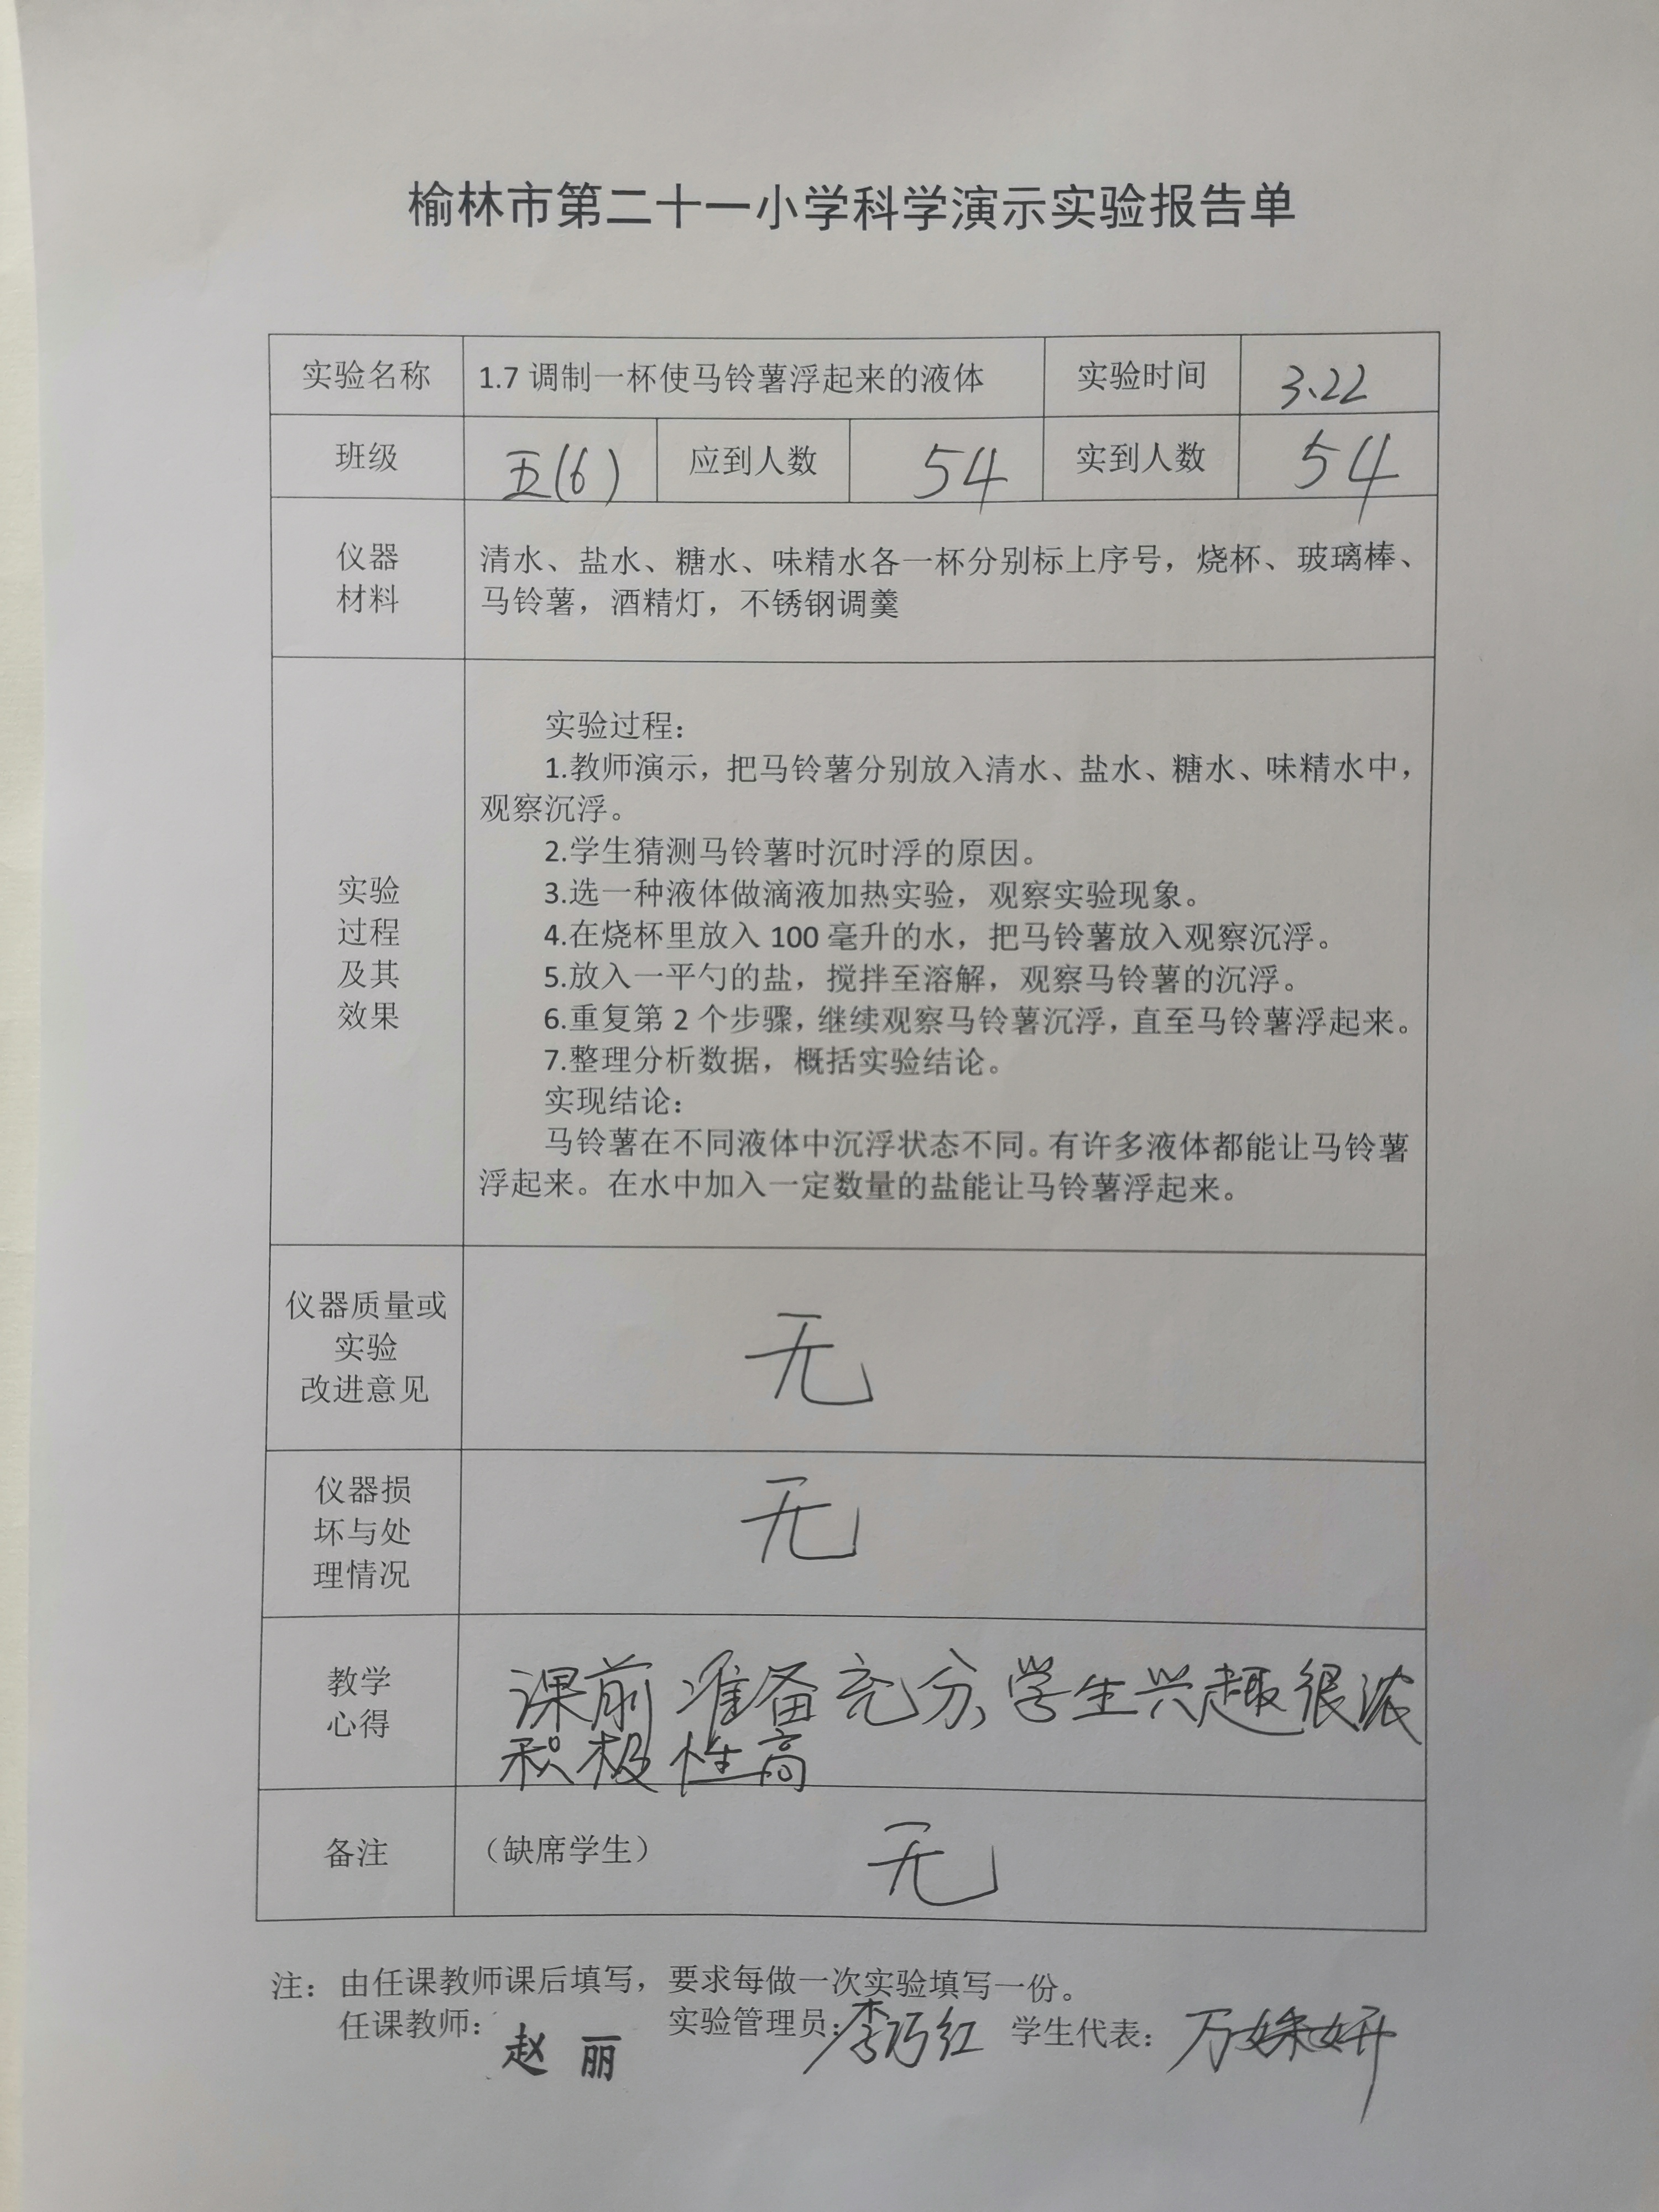 榆林市第二十一小学科学演示实验报告单
实验名称 1.7 调制一杯使马铃薯浮起来的液体 实验时间 3.22
班级 五(6) 应到人数 54 实到人数 54
仪器
材料
清水、盐水、糖水、味精水各一杯分别标上序号，烧杯、玻璃棒、
马铃薯，酒精灯，不锈钢调羹
实验
过程
及其
效果
实验过程：
1.教师演示，把马铃薯分别放入清水、盐水、糖水、味精水中，
观察沉浮。
2.学生猜测马铃薯时沉时浮的原因。
3.选一种液体做滴液加热实验，观察实验现象。
4.在烧杯里放入 100 毫升的水，把马铃薯放入观察沉浮。
5.放入一平勺的盐，搅拌至溶解，观察马铃薯的沉浮。
6.重复第 2 个步骤，继续观察马铃薯沉浮，直至马铃薯浮起来。
7.整理分析数据，概括实验结论。
实现结论：
马铃薯在不同液体中沉浮状态不同。有许多液体都能让马铃薯
浮起来。在水中加入一定数量的盐能让马铃薯浮起来。
仪器质量或
实验
改进意见
无
仪器损
坏与处
理情况
无
教学
心得
课前准备充分，学生兴趣很浓
积极性高
备注 （缺席学生） 无
注：由任课教师课后填写，要求每做一次实验填写一份。
任课教师： 赵丽 实验管理员：李巧红 学生代表：万姝妍